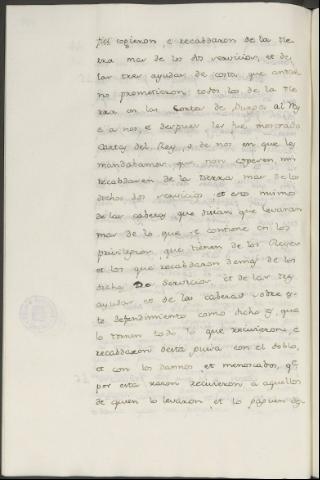 copieron, e recabdaron de la tie
rra mas de los dos servicios, et de
las tres ayudas de costa que antaño
no prometieron todos los de la tie
rra en las Cortes de Burgos al Rey
e a nos, e despues les fue mostrado
Cartas del Rey, o de nos en que les
mandabamos que non copiesen, nin
recabdasen de la tierra mas de los
dichos dos servicios et eso mismo
de las cabezas que dicían que levaran
mas de lo que se contiene en los
privilegios que tienen de los Reyes
et los que recabdaron demas de los
dichos Dos servicios, et de las tres
ayudas, et de las cabezas sobre es
te defendimiento como dicho es, que
lo tomen todo lo que rescivieron, e
recabdaron desta guisa con el doblo,
et con los daños, et menoscabos, que
por esta razon rescivieron á aquellos
de quien lo levaron, et lo paguen